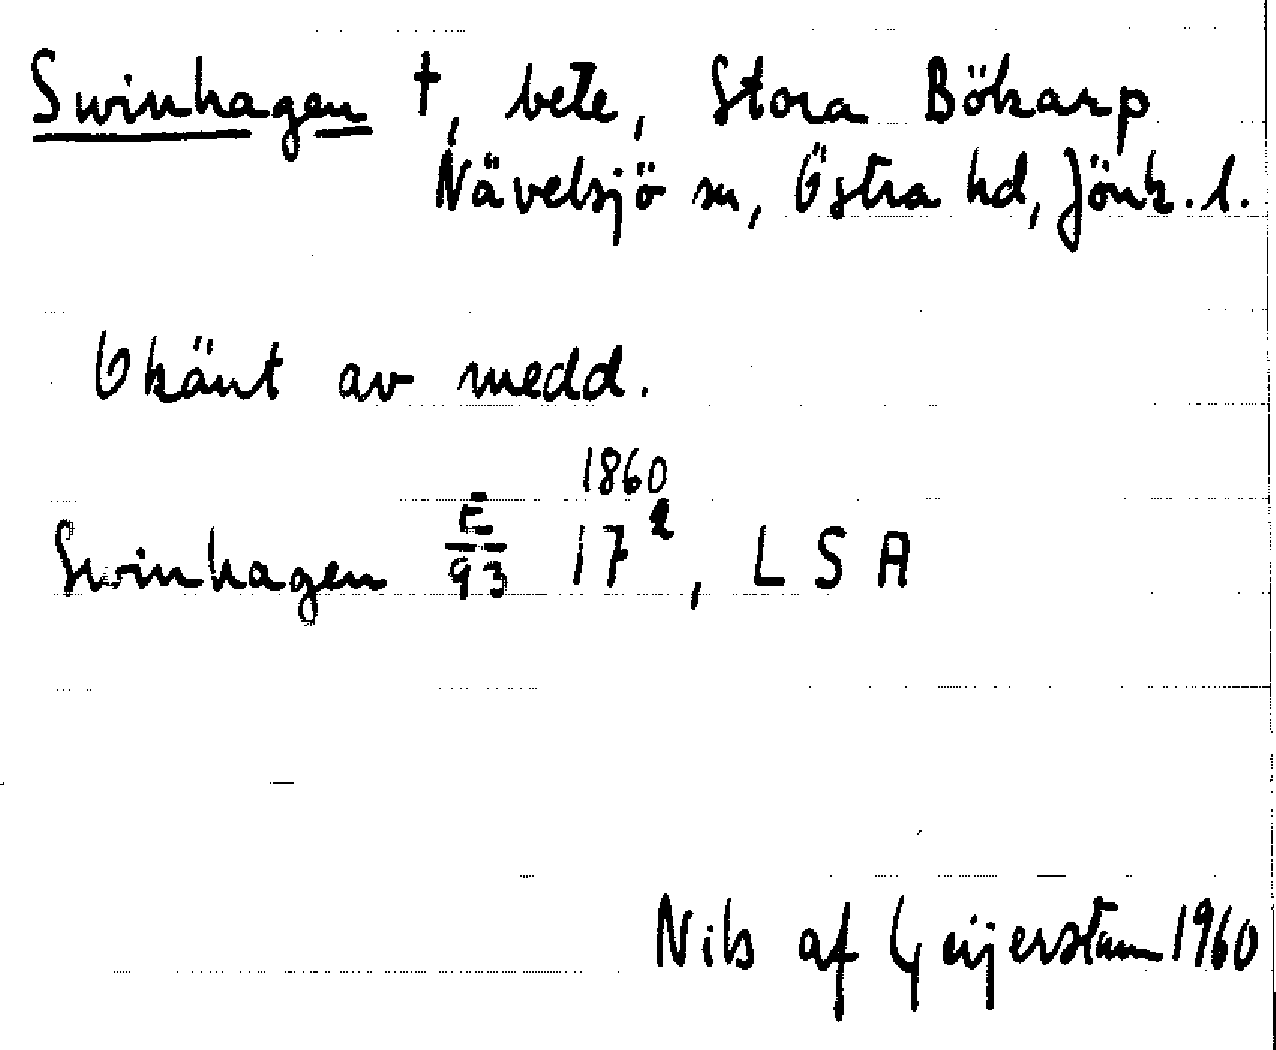 Swinhagen †, bete, Stora Bökarp
Nävelsjö sn, Östra hd, Jönk. l.
Okänt av medd.
1860
Swinhagen E/93 17², LSA
Nils af Geijerstam 1960